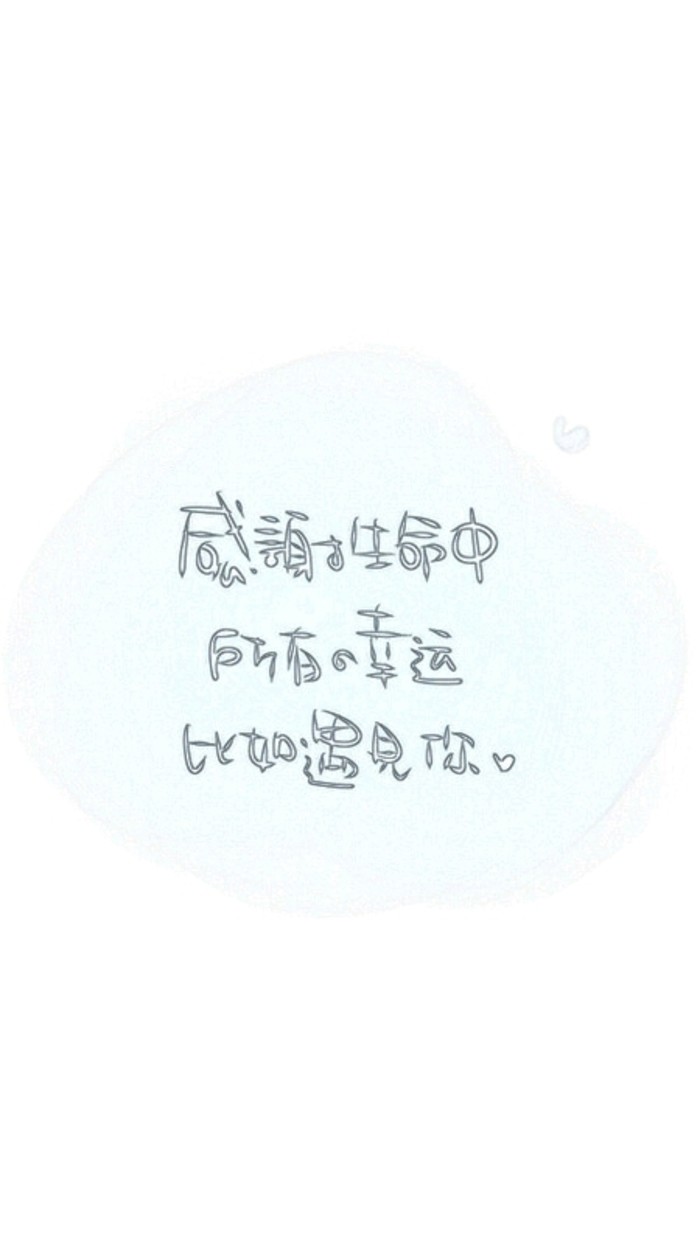 感謝生命中
所有の幸运
比如遇見你